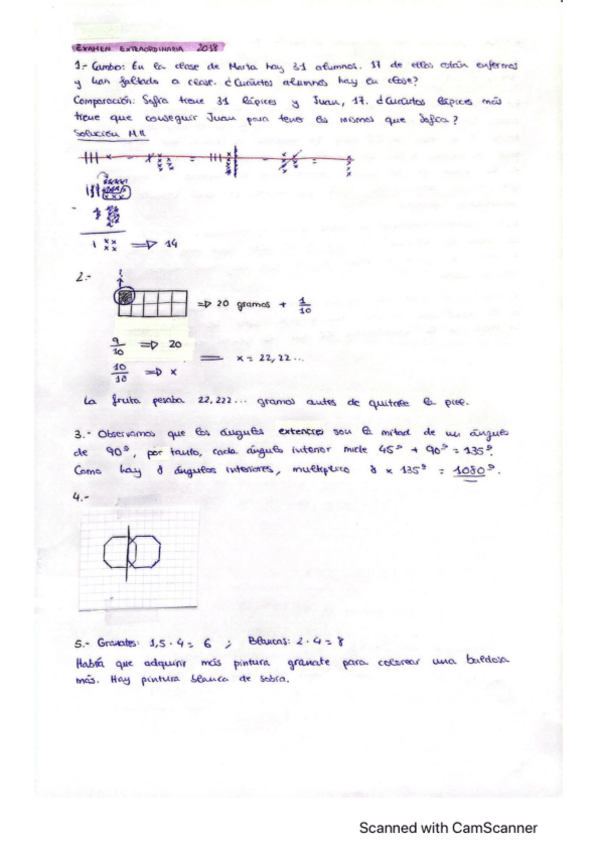 EXAMEN EXTRAORDINARIA 2018
1.- Cambio: En la clase de Marta hay 31 alumnos. 17 de ellos están enfermos
y han faltado a clase. ¿Cuántos alumnos hay en clase?
Comparación: Sofía tiene 31 lápices y Juan, 17. ¿Cuántos lápices más
tiene que conseguir Juan para tener los mismos que Sofía?
Solución
1 xx xx => 14
2.-
=> 20 gramos + 1/10
9/10 => 20
10/10 => x
x = 22,22...
La fruta pesaba 22,222... gramos antes de quitarle la piel.
3.- Observamos que los ángulos son la mitad de un ángulo
de 90º, por tanto, cada ángulo interior mide 45º + 90º = 135º.
Como hay 8 ángulos interiores, multiplico 8 x 135º = 1080º.
4.-
5.- Granates: 1,5 · 4 = 6 ; Blancas: 2 · 4 = 8
Habrá que adquirir más pintura granate para colorear una baldosa
más. Hay pintura blanca de sobra.
Scanned with CamScanner